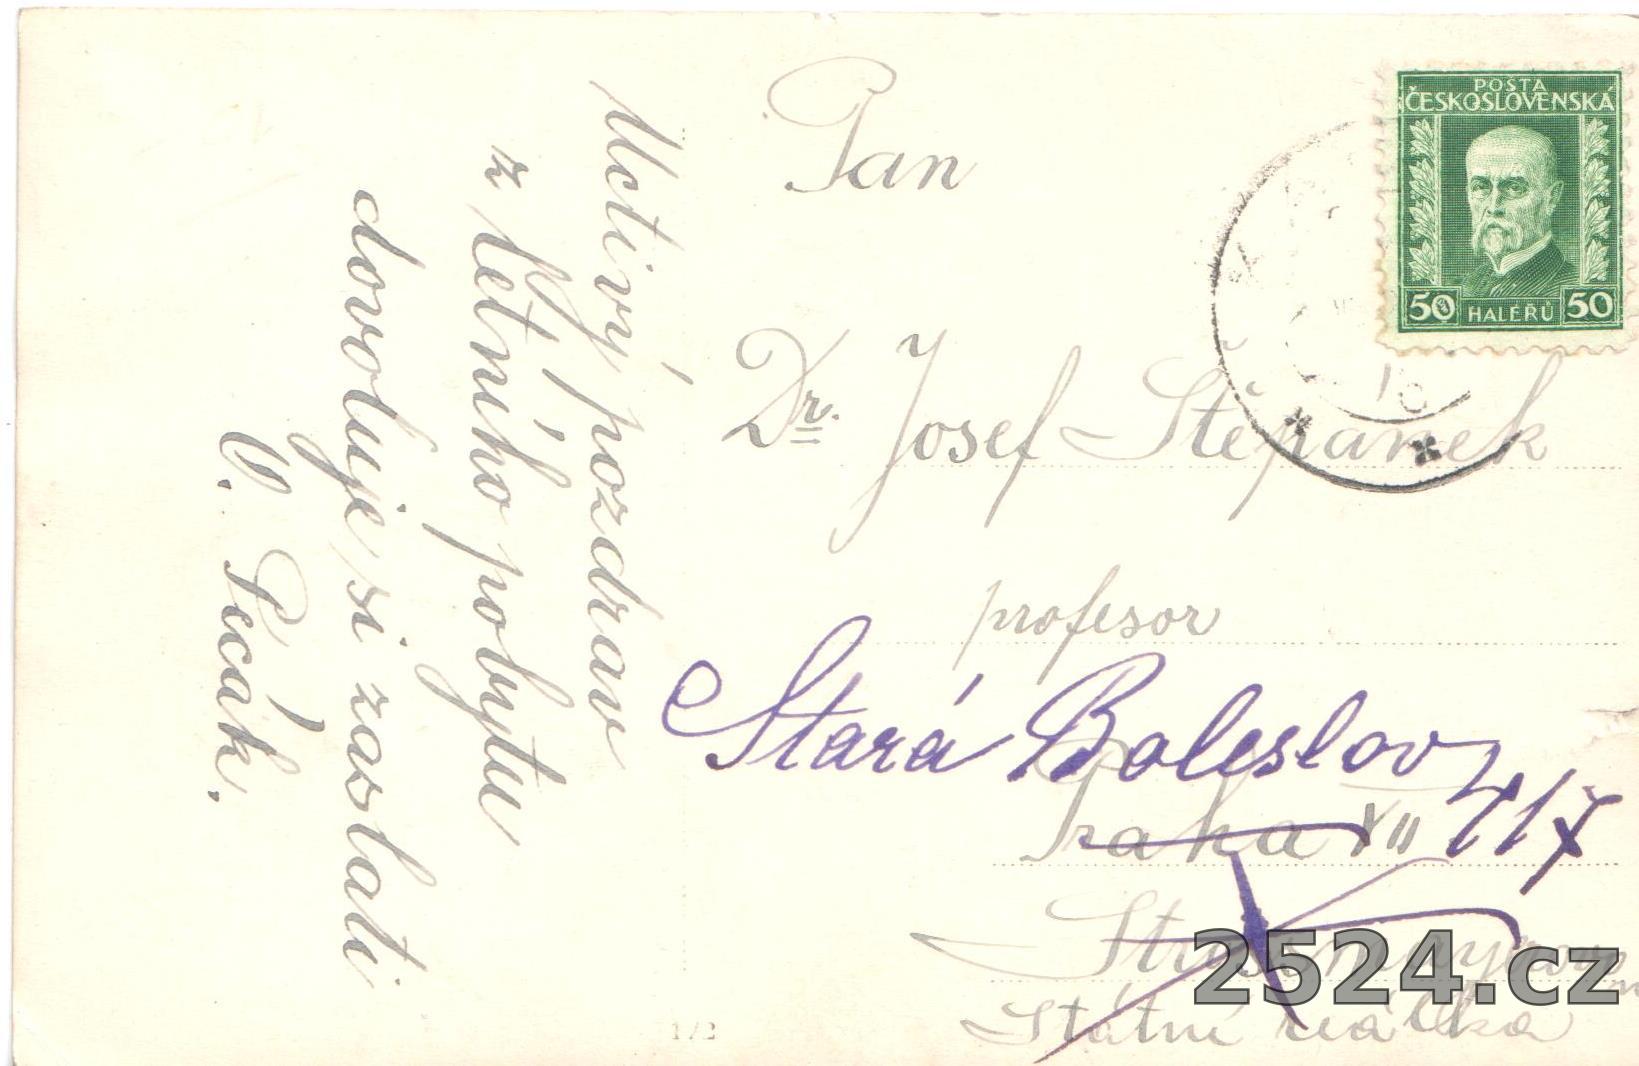 Uctivý pozdrav
z letního pobytu
dovoluje si zaslati
V. Pecák.
POŠTA
ČESKOSLOVENSKÁ
50 HALÉŘŮ 50
Pan
Dr. Josef Štěpánek
profesor
Stará Boleslov
Praha XII
Státní
1/2
2524.cz